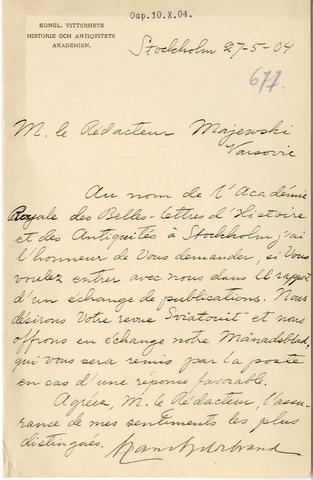 Odp. 10. X. 04.
KONGL. VITTERHETS
HISTORIE OCH ANTIQVITETS
AKADEMIEN.
Stockholm 27-5-04
677.
M. le Rédacteur Majewski
Varsovie
Au nom de l'Académie
Royale des Belles-lettres d'Histoire
et des Antiquités à Stockholm j'ai
l'honneur de Vous demander, si Vous
voulez entrer avec nous dans le rapport
d'un échange de publications. Nous
désirons Votre revue Sviatovit et nous
offrons en échange notre Månadsblad,
qui vous sera remis par la poste
en cas d'une réponse favorable.
Agréez, M. le Rédacteur, l'assu-
rance de mes sentiments les plus
distingués.